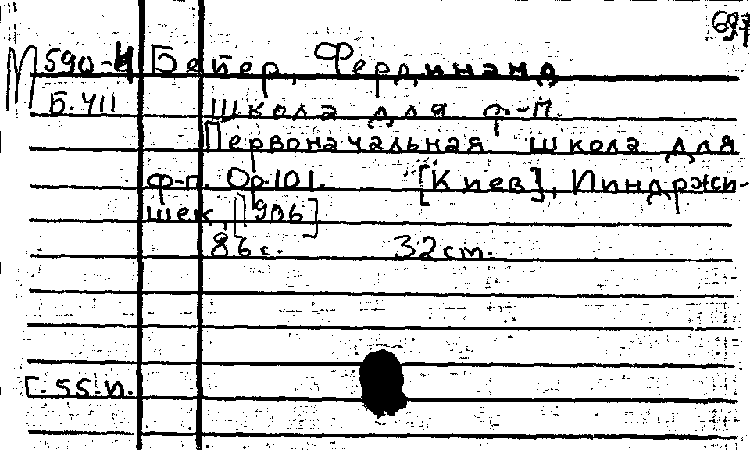 697
М 590-4 Бейер, Фердинанд
Б.411 Школа для ф-п.
Первоначальная школа для
ф-п. Op.101. [Киев], Индржи-
шек, [1906]
86 с. 32 cm.
Г. 55. п.